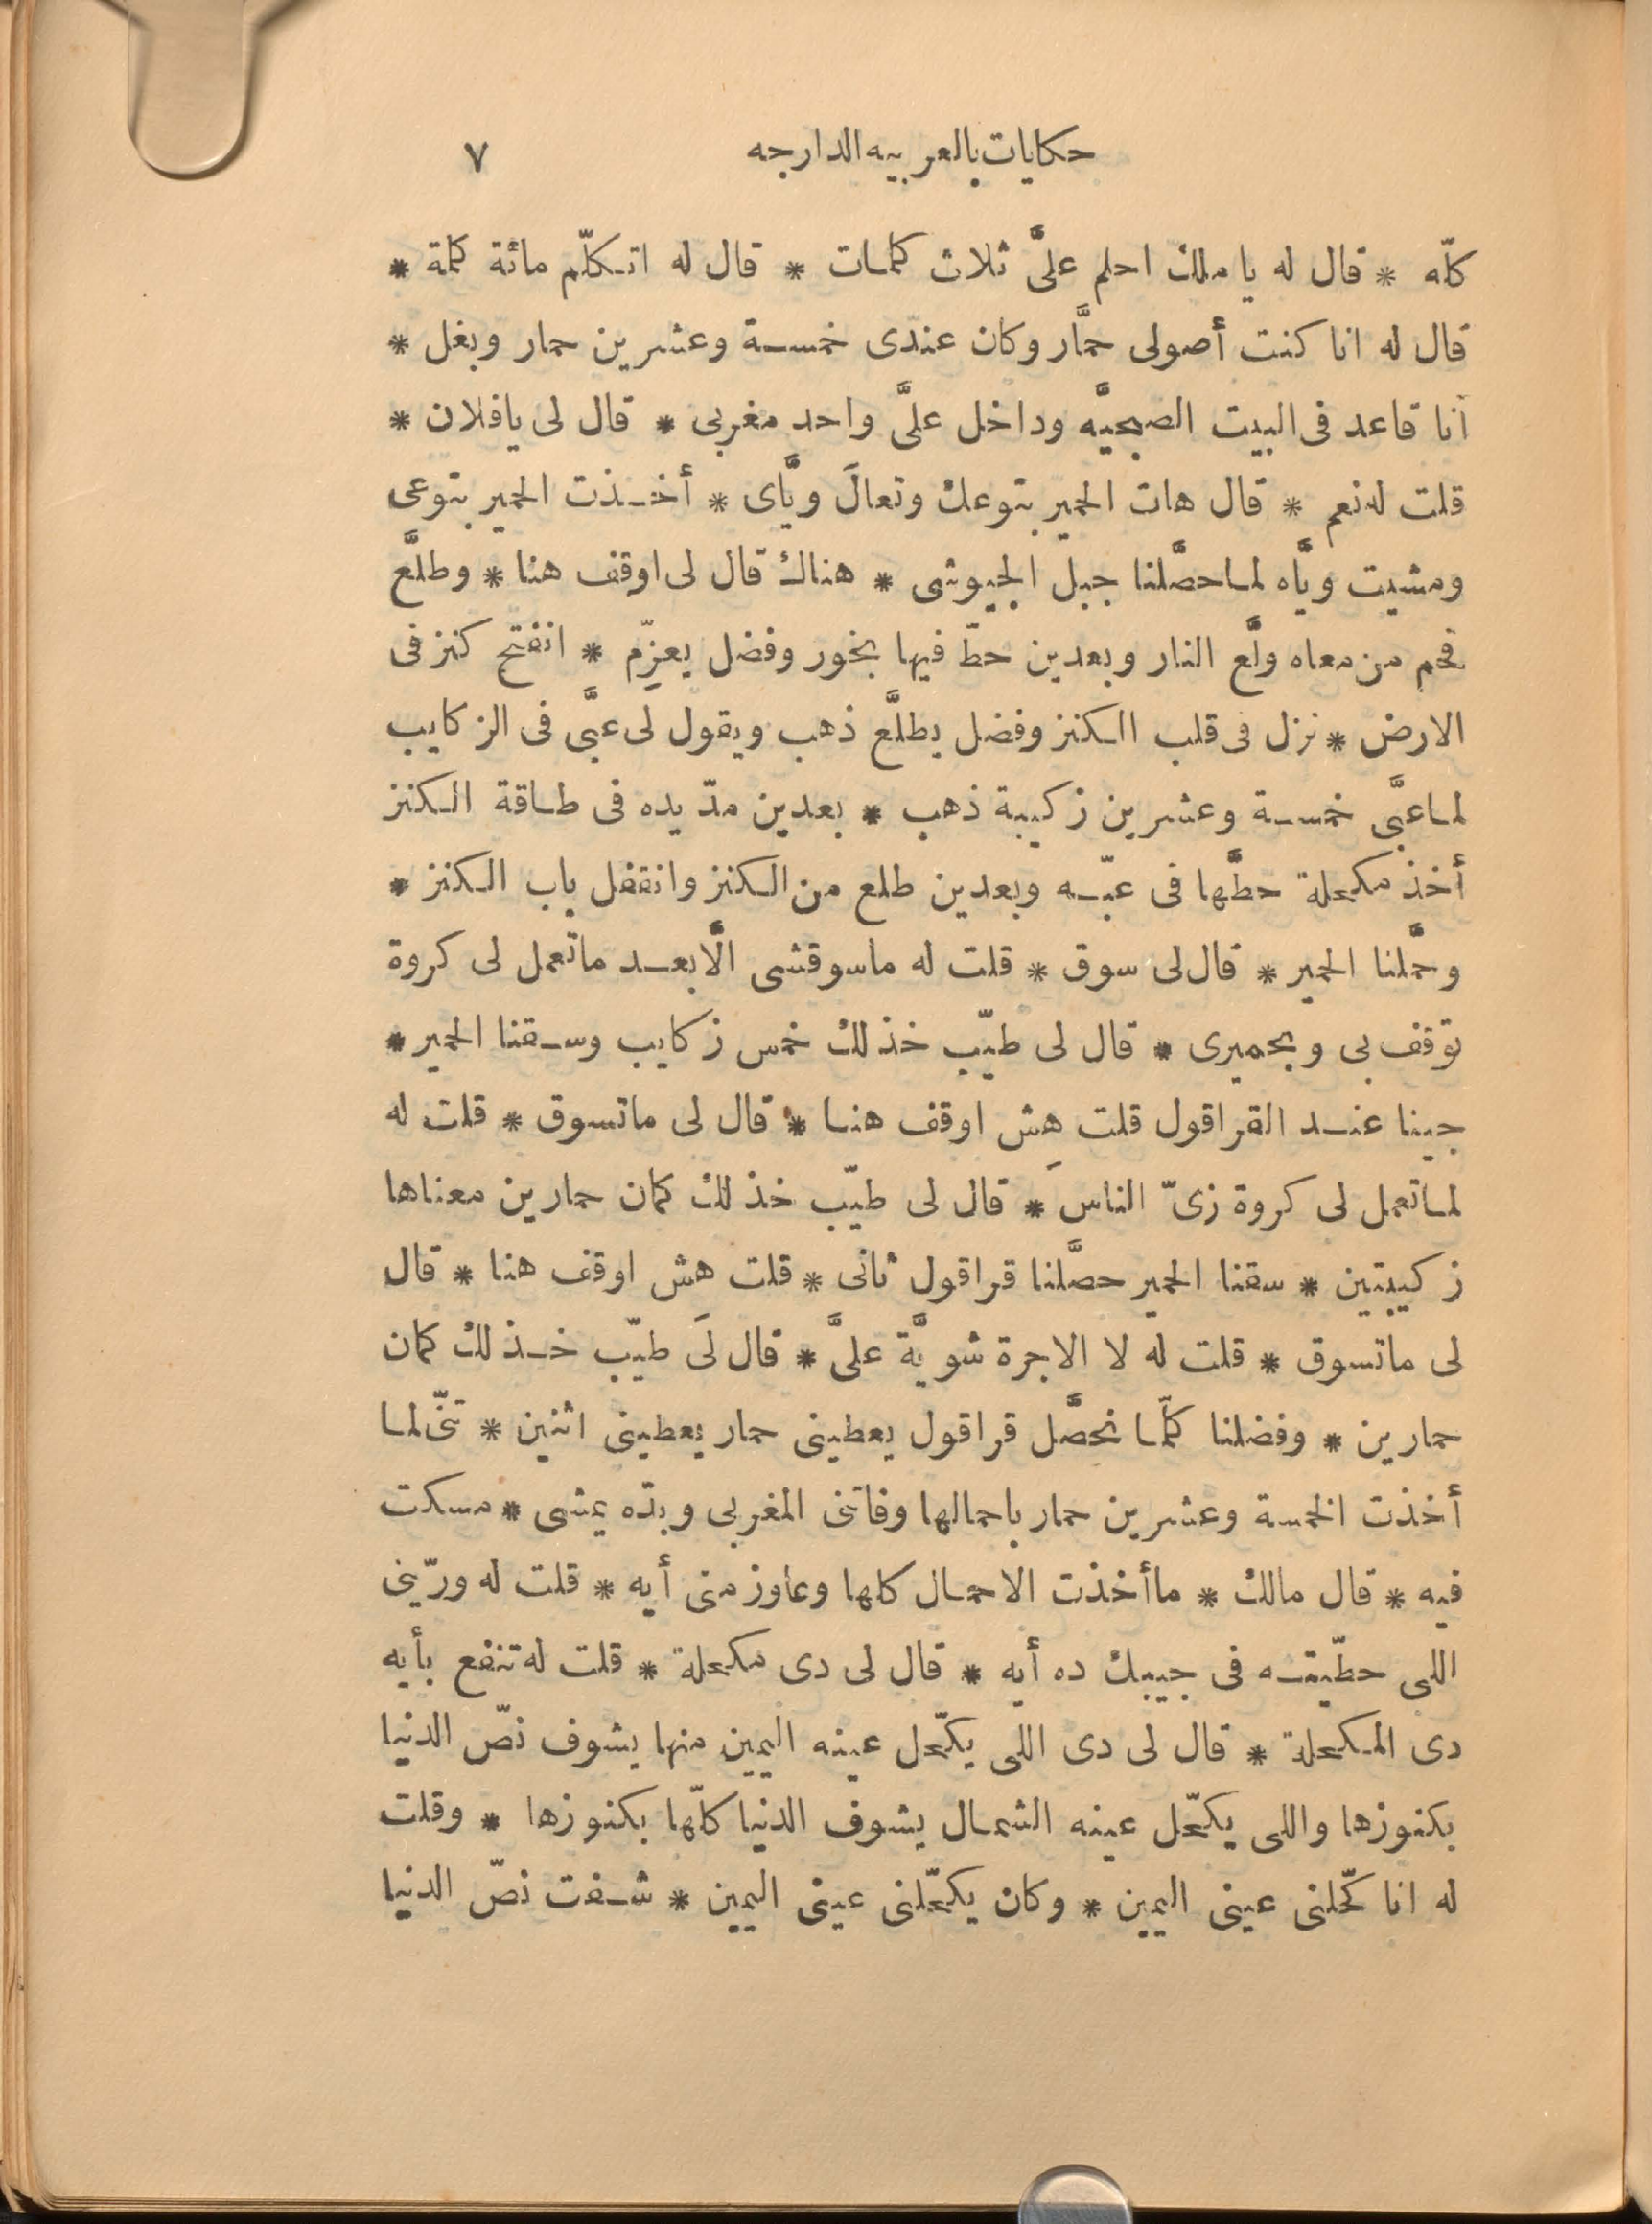 حكايات بالعربيه الدارجه ٧
كلّه * قال له يا ملك احلم علىَّ ثلاث كلمات * قال له اتكلّم مائة كلمة *
قال له انا كنت أصولى حمَّار وكان عندى خمسة وعشرين حمار وبغل *
أنا قاعد فى البيت الصبحيَّه وداخل علىَّ واحد مغربى * قال لى يا فلان *
قلت له نعم * قال هات الحمير بتوعك وتعالَ ويَّاى * أخذت الحمير بتوعى
ومشيت ويَّاه لما حصَّلنا جبل الجيوشى * هناك قال لى اوقف هنا * وطلَّع
فحم من معاه ولَّع النار وبعدين حطّ فيها بخور وفضل يعزِّم * انفتح كنز فى
الارض * نزل فى قلب الكنز وفضل يطلَّع ذهب ويقول لى عبَّى فى الزكايب
لما عبَّى خمسة وعشرين زكيبة ذهب * بعدين مدّ يده فى طاقة الكنز
أخذ مكحلة حطَّها فى عبّه وبعدين طلع من الكنز وانقفل باب الكنز *
وحمَّلنا الحمير * قال لى سوق * قلت له ماسوقشى الَّا بعد ماتعمل لى كروة
توقف بى وبحميرى * قال لى طيّب خذ لك خمس زكايب وسقنا الحمير *
جينا عند القراقول قلت هِش اوقف هنا * قال لى ماتسوق * قلت له
لما تعمل لى كروة زىّ الناس * قال لى طيّب خذ لك كمان حمارين معناها
زكيبتين * سقنا الحمير حصَّلنا قراقول ثانى * قلت هش اوقف هنا * قال
لى ماتسوق * قلت له لا الاجرة شويَّة علىَّ * قال لَى طيّب خذ لك كمان
حمارين * وفضلنا كلَّما نحصَّل قراقول يعطينى حمار يعطينى اثنين * تنّى لما
أخذت الخمسة وعشرين حمار باحمالها وفاتنى المغربى وبدّه يمشى * مسكت
فيه * قال مالك * ماأخذت الاحمال كلها وعاوز منى أيه * قلت له ورّينى
اللى حطّيته فى جيبك ده أيه * قال لى دى مكحلة * قلت له تنفع بأيه
دى المكحلة * قال لى دى اللى يكحّل عينه اليمين منها يشوف نصّ الدنيا
بكنوزها واللى يكحّل عينه الشمال يشوف الدنيا كلّها بكنوزها * وقلت
له انا كحّلنى عينى اليمين * وكان يكحّلنى عينى اليمين * شفت نصّ الدنيا